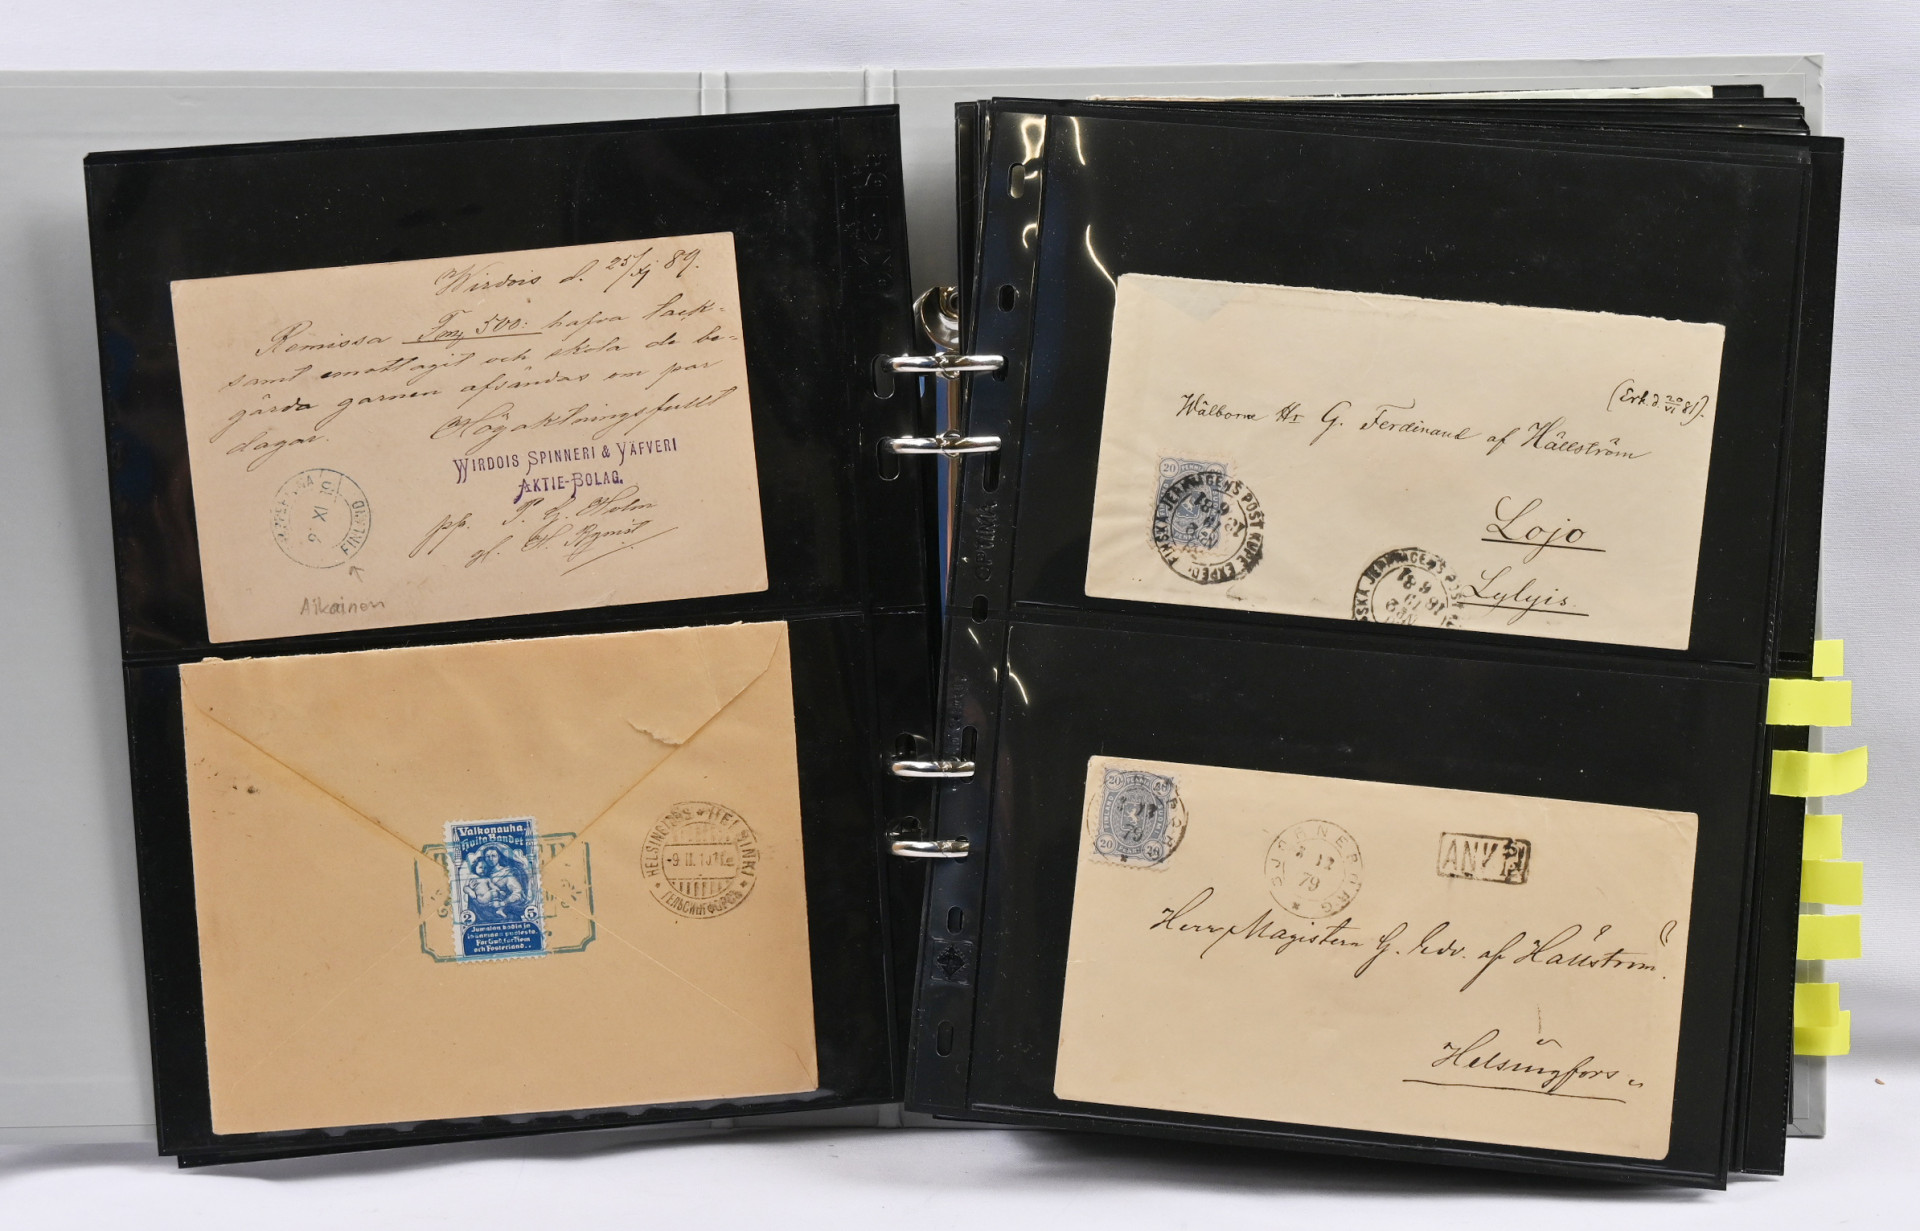 Wirdois d. 25/XI 89.
Remissa Fmk 500: hafva tack-
samt emottagit och skola de be-
gärda garnen afsändas om par
dagar. Högaktningsfullt
WIRDOIS SPINNERI & VÄFVERI
AKTIE-BOLAG.
pp.
FINLAND
Aikainen
Valkonauha
Hvita Bandet
2 5
Jumalan kodin ja
isänmaan puolesta.
För Gud, för Hem
och Fosterland.
HELSINGFORS * HELSINKI *
-9.II.10
ГЕЛЬСИНГФОРСЪ
OPTIMA
(Erh. d. 20/VI 81).
Wälborne Hr G. Ferdinand af Hällström
Lojo
Lylyis.
20 PENNI
FINSKA JERNVÄGENS POST KUPE EXPED.
FINSKA JERNVÄGENS POST
20 PENNI 20
20 PENNI 20
79
BJÖRNEBORG
79
ANK
Herr Magistern G. Edv. af Hällström.
Helsingfors